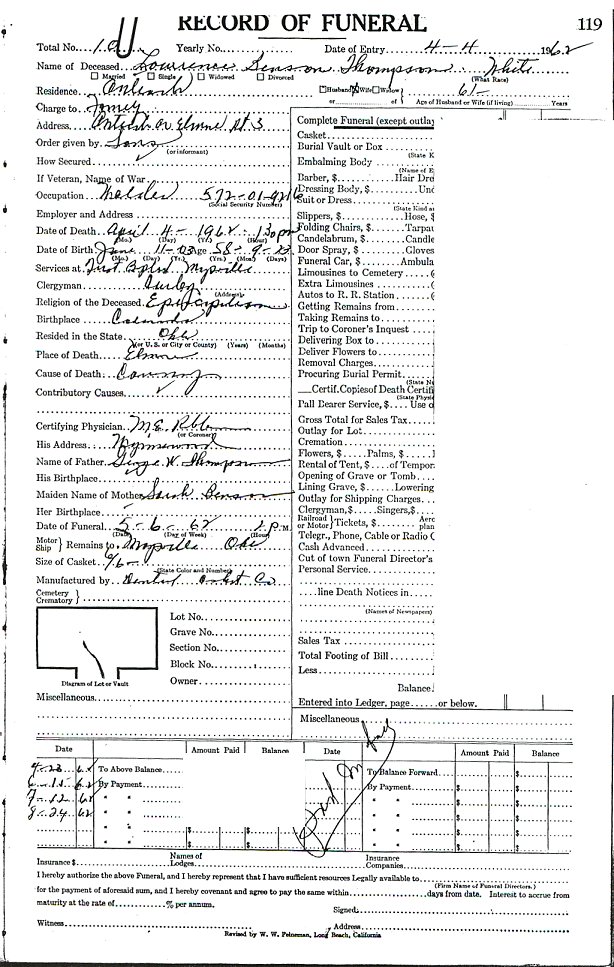 RECORD OF FUNERAL 119
Total No. Yearly No. Date of Entry 4-4 1962
Name of Deceased Lawrence Benson Thompson White
Married Single Widowed Divorced (What Race)
Residence Antioch Husband Wife Widow 61-
or of Age of Husband or Wife (if living) Years
Charge to Family
Address Antioch or Elmore Rt 3
Order given by Sons
(or informant)
How Secured
If Veteran, Name of War
Occupation 572-01-
(Social Security Number)
Employer and Address
Date of Death April 4-1962 130 pm
(Mo.) (Day) (Yr.) (Hour)
Date of Birth June 11-03 Age 58-9-23
(Mo.) (Day) (Yr.) (Yrs.) (Mon.) (Days)
Services at First Baptist Maysville
Clergyman
(Address)
Religion of the Deceased Episcopalian
Birthplace Colorado
Resided in the State Okla
(or U. S. or City or County) (Years) (Months)
Place of Death Elmore
Cause of Death Coronary
Contributory Causes
Certifying Physician M.E. Robberson
(or Coroner)
His Address Wynnewood
Name of Father George W. Thompson
His Birthplace
Maiden Name of Mother Sarah Benson
Her Birthplace
Date of Funeral 5-6-62 2 P.M.
(Date) (Day of Week) (Hour)
Motor Ship } Remains to Maysville Okla
Size of Casket 6/6-
(State Color and Number)
Manufactured by Casket Co
Cemetery Crematory }
Lot No.
Grave No.
Section No.
Block No.
Owner
Diagram of Lot or Vault
Miscellaneous
Complete Funeral (except outlay
Casket
Burial Vault or Box
(State K
Embalming Body
(Name of E
Barber, $ Hair Dre
Dressing Body, $ Und
Suit or Dress
(State Kind a
Slippers, $ Hose, $
Folding Chairs, $ Tarpau
Candelabrum, $ Candle
Door Spray, $ Gloves
Funeral Car, $ Ambula
Limousines to Cemetery
Extra Limousines
Autos to R. R. Station
Getting Remains from
Taking Remains to
Trip to Coroner's Inquest
Delivering Box to
Deliver Flowers to
Removal Charges
Procuring Burial Permit
(State N
Certif. Copies of Death Certifi
(State Physi
Pall Bearer Service, $ Use o
Gross Total for Sales Tax
Outlay for Lot
Cremation
Flowers, $ Palms, $
Rental of Tent, $ of Tempor
Opening of Grave or Tomb
Lining Grave, $ Lowering
Outlay for Shipping Charges
Clergyman, $ Singers, $
Railroad or Motor } Tickets, $ Aero plan
Telegr., Phone, Cable or Radio C
Cash Advanced
Out of town Funeral Director's
Personal Service
line Death Notices in
(Names of Newspapers)
Sales Tax
Total Footing of Bill
Less
Balance
Entered into Ledger, page or below.
Miscellaneous
Date Amount Paid Balance Date Amount Paid Balance
4-23 62 To Above Balance $ To Balance Forward $
6-15 62 By Payment By Payment $
7-12 62 " " " " $
8-24 62 " " " " $
" " $ $ " " $
" " $ $ " " $
Paid in full
Insurance $ Names of Lodges Insurance Companies
I hereby authorize the above Funeral, and I hereby represent that I have sufficient resources Legally available to
(Firm Name of Funeral Directors.)
for the payment of aforesaid sum, and I hereby covenant and agree to pay the same within days from date. Interest to accrue from
maturity at the rate of % per annum. Signed:
Witness Address
Revised by W. W. Feineman, Long Beach, California